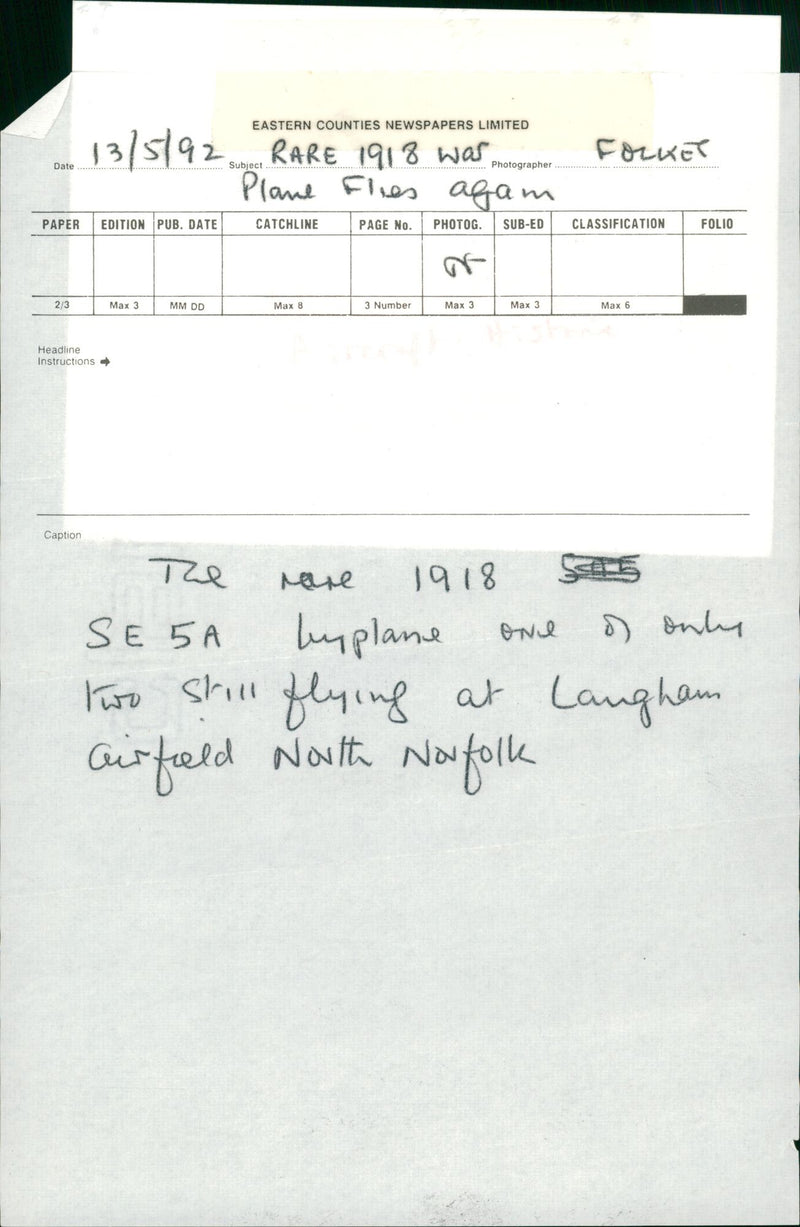 EASTERN COUNTIES NEWSPAPERS LIMITED
Date 13/5/92 Subject RARE 1918 War Photographer FOLKET
Plane Flies again
PAPER EDITION PUB. DATE CATCHLINE PAGE No. PHOTOG. SUB-ED CLASSIFICATION FOLIO
2/3 Max 3 MM DD Max 8 3 Number Max 3 Max 3 Max 6
Headline
Instructions
Caption
The rare 1918
SE 5A byplane one of only
two still flying at Langham
Airfield North Norfolk